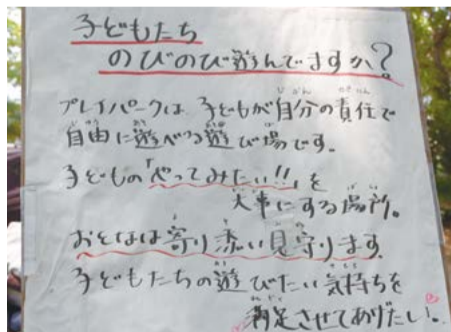 子どもたち
のびのび遊んでますか?
プレイパークは、子どもが自分の責任で
自由に遊べる遊び場です。
子どもの「やってみたい!!」を
大事にする場所。
おとなは寄り添い見守ります
子どもたちの遊びたい気持ちを
満足させてあげたい!。